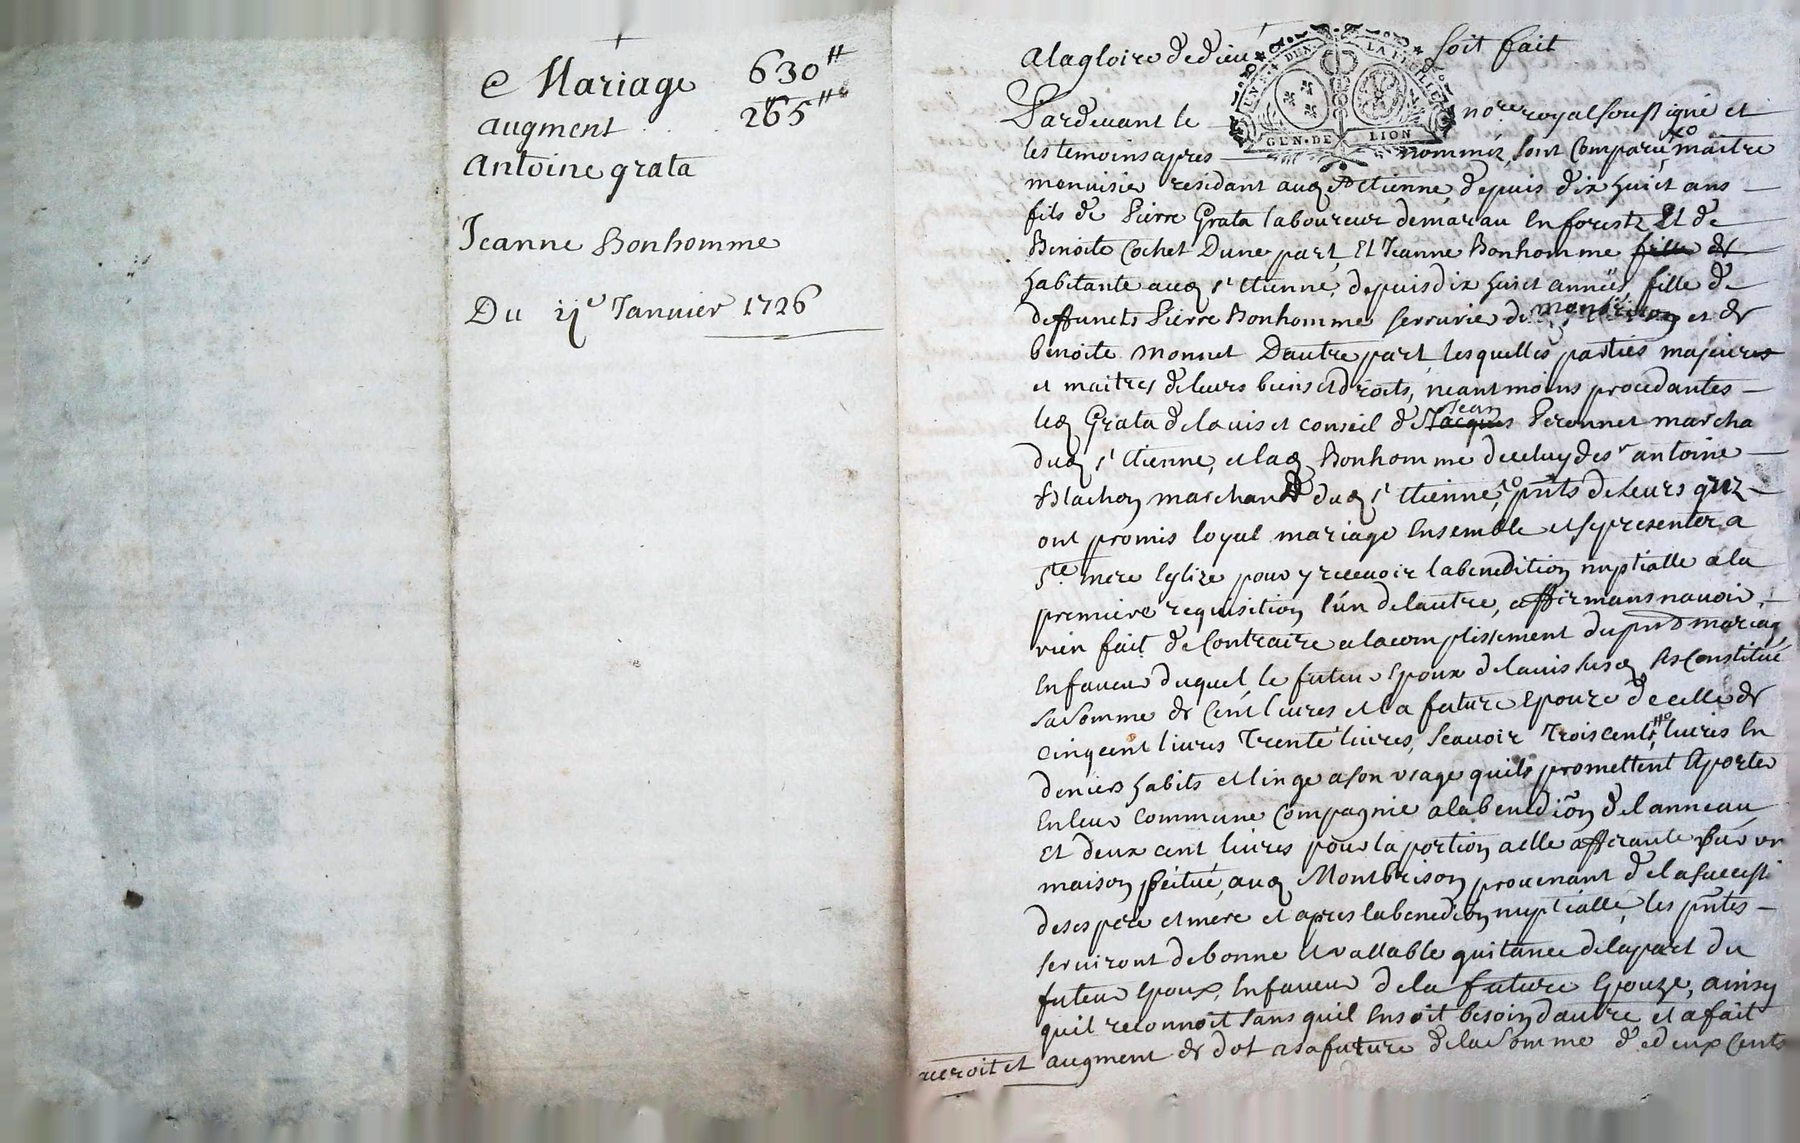 Mariage 630#
augment . . . 265#
Antoine grata
Jeanne Bonhomme
Du 11e Janvier 1726
A la gloire de dieu soit fait
GEN. DE LION
Pardevant le nore royal soussigné et
les temoins apres nommez, sont comparu maitre
menuisier residant aud St Etienne depuis dix huict ans
fils de Pierre Grata laboureur de marau en forestz Et de
Benoite Cochet Dune part, Et Jeanne Bonhomme fille de
habitante aud st Etienne, depuis dix huict années, fille de
deffuncts Pierre Bonhomme serrurie de et de
benoite monnet Dautre part, lesquelles parties majeures
et maitres de leurs biens et droits, neantmoins procedantes
led Grata de lavis et conseil de Jacques Jean Peronnet marcha
dud st Etienne, et lad Bonhomme de celuy de sr antoine
Blachon marchand dud st Etienne, pnts de leurs grez
ont promis loyal mariage Ensemble et se presenter a
Ste mere Eglize pour y recevoir la benedition nuptialle a la
premiere requisition l'un de lautre, affirmans navoir
rien fait de Contraire a lacomplissement du pnt mariag
En faveur duquel le futeur Epoux de lavis susd Ses Constitué
la somme de Cent livres et la future Epouze de celle de
cinq cent livres trente livres, scavoir trois cents livres En
deniers habits et linge a son usage quils promettent aporter
En leur commune Compagnie a la benedion de lanneau
Et deux cent livres pour la portion a elle afferante sur un
maison scitué, aud Montbrison provenant de la successi
de ses pere et mere et apres la benedion nuptialle, les pntes
serviront de bonne et vallable quitance de la part du
futeur Epoux, En faveur de la future Epouze, ainsy
quil reconnoit sans quil En soit besoin dautre et a fait
acroit et augment de dot a sa future de la somme de deux cents